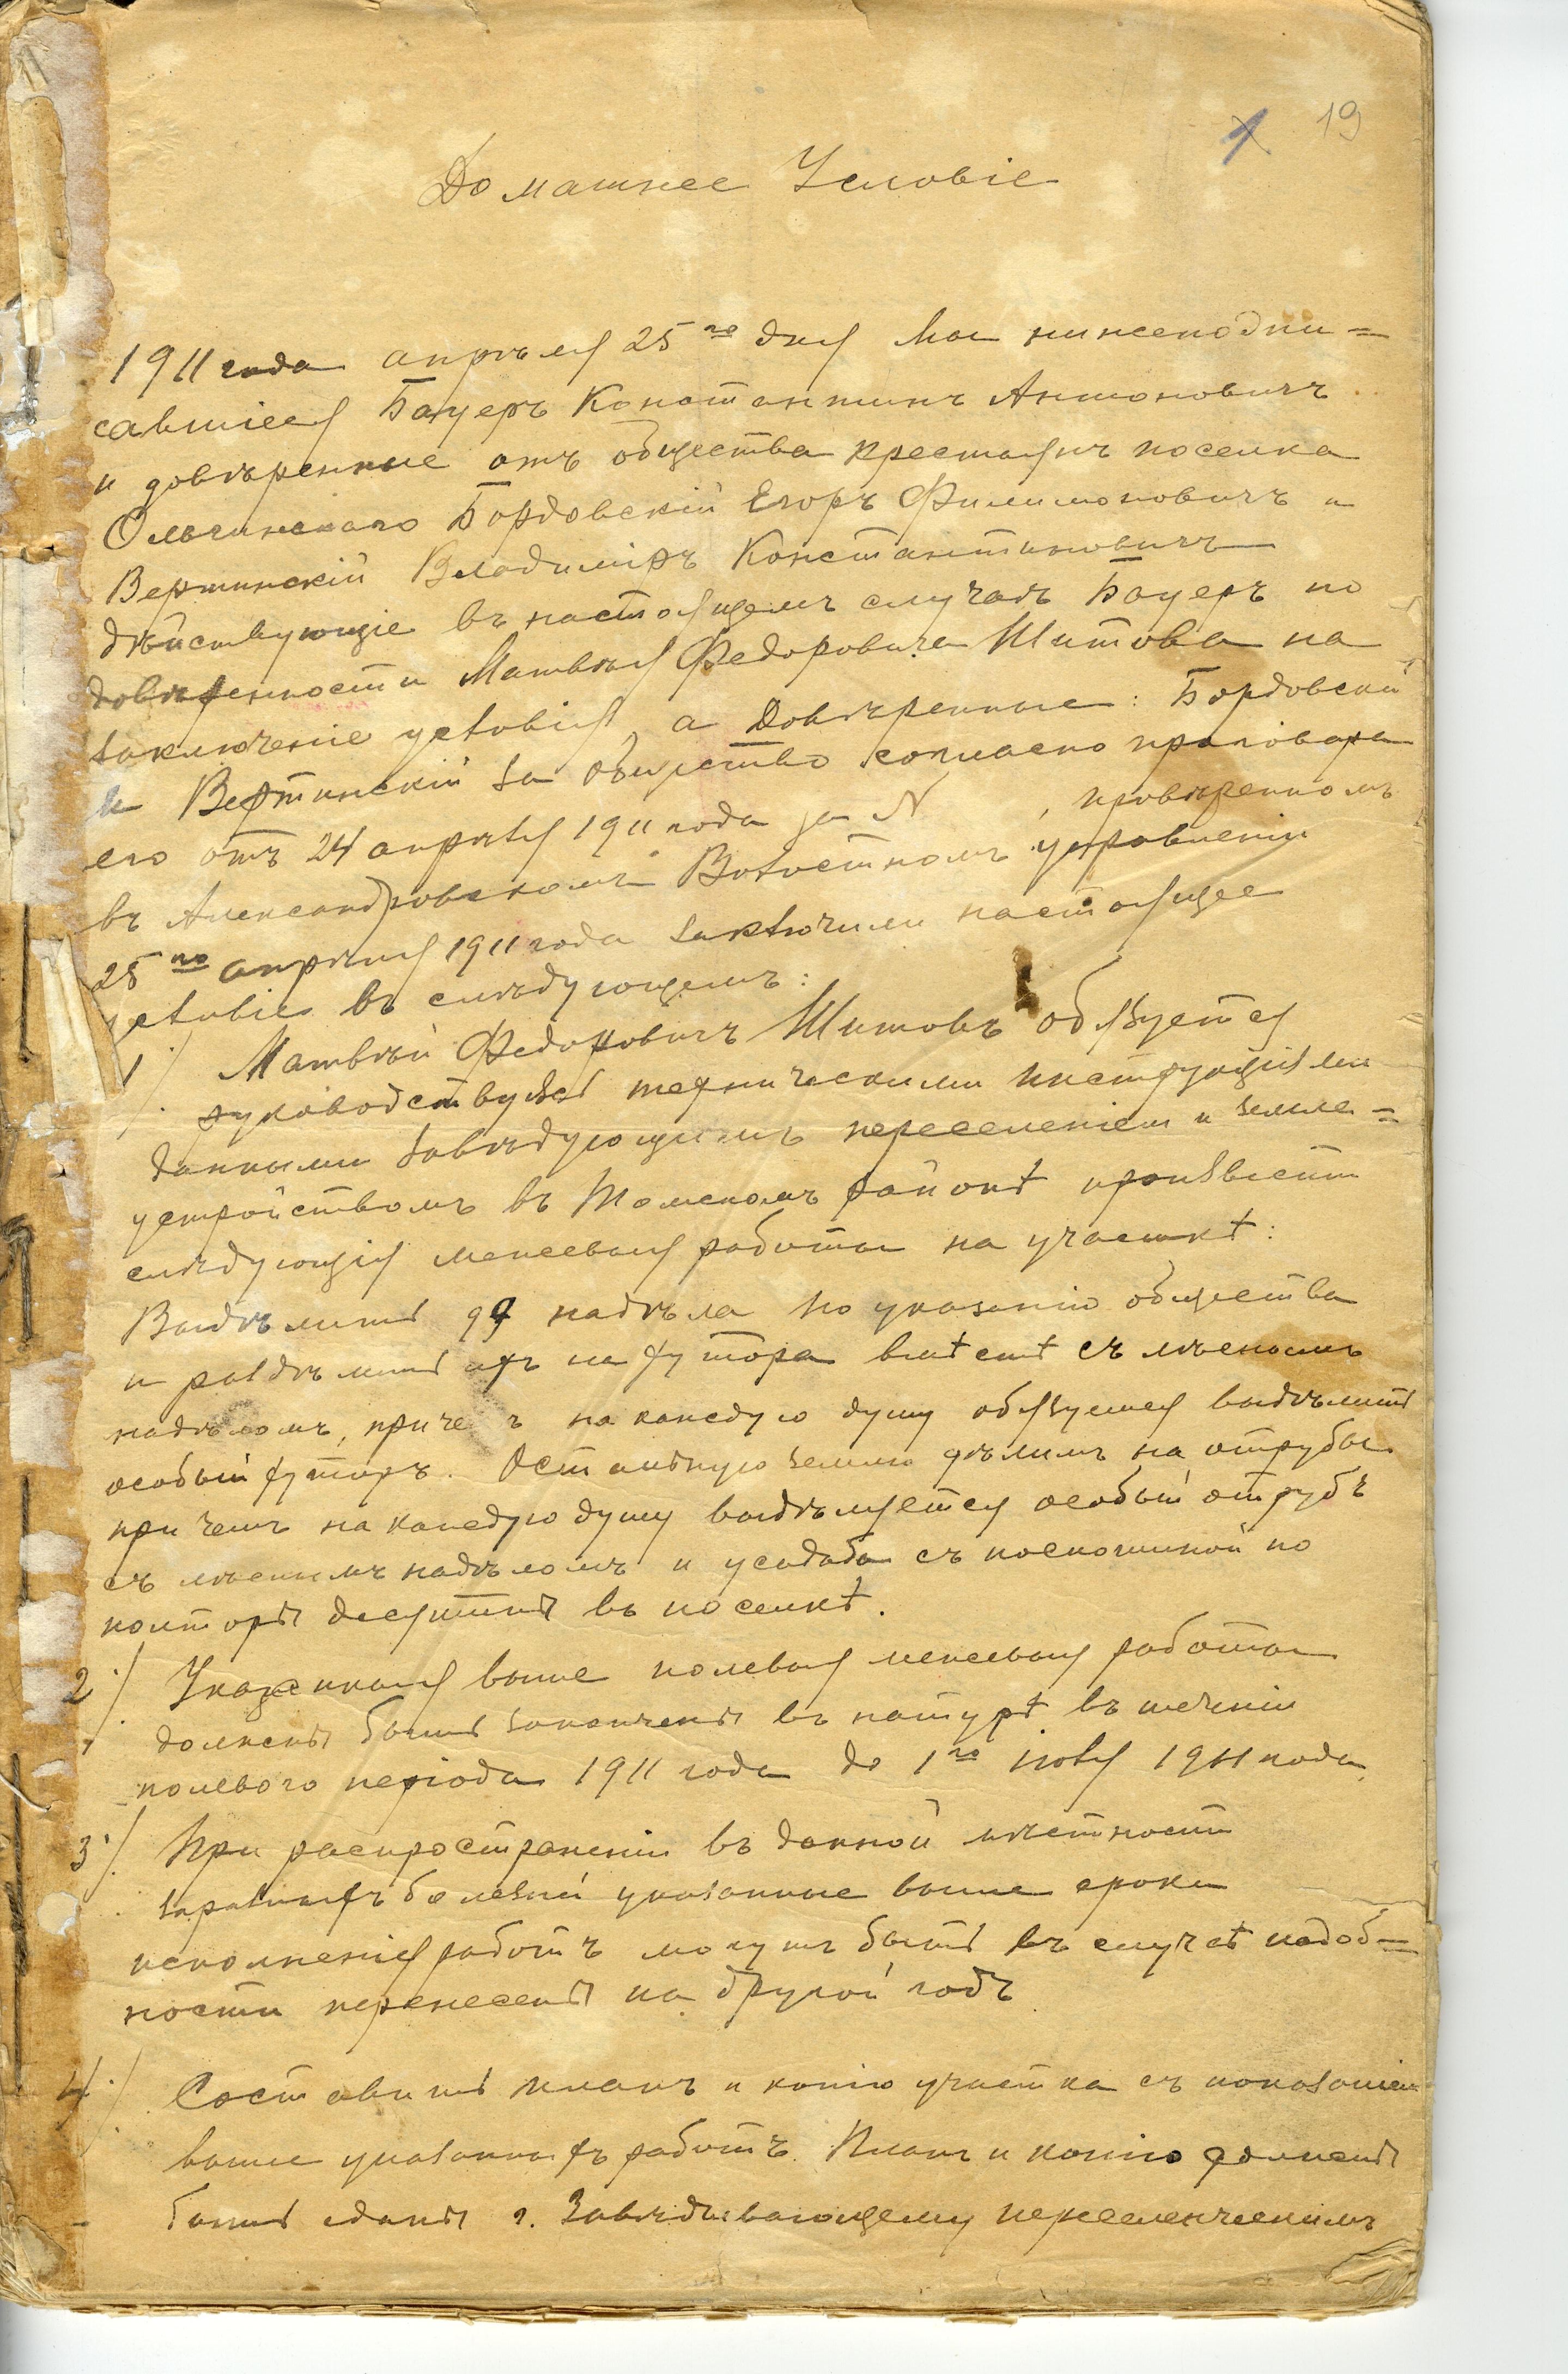 1 19
Домашнее Условіе
1911 года апрѣля 25го дня Мы нижеподпи=
савшіеся Бауеръ Константинъ Антоновичъ
и довѣренные отъ общества крестьянъ поселка
Ольгинскаго Бордовскій Егоръ Филимоновичъ и
Вертинскій Владиміръ Константиновичъ
дѣйствующіе въ настоящемъ случаѣ Бауеръ по
довѣренности Матвѣя Федоровича Шитова на
заключеніе условія, а Довѣренные: Бордовскій
и Вертинскій за общество согласно приговора
его отъ 24 апрѣля 1911 года за N , провѣренномъ
въ Александровскомъ Волостномъ управленіи
25го апрѣля 1911 года заключили настоящее
условіе въ слѣдующемъ:
1./ Матвѣй Федоровичъ Шитовъ обязуется
руководствуясь техническими инструкціями
данными Завѣдующимъ переселеніемъ и земле=
устройствомъ въ Томскомъ районѣ произвести
слѣдующія межевыя работы на участкѣ:
Выдѣлить 99 надѣла по указанію общества
и раздѣлить ихъ на хутора вмѣстѣ съ лѣснымъ
надѣломъ, приче ъ на каждую душу обязуется выдѣлить
особый хуторъ. Остальную землю дѣлимъ на отрубы
при чемъ на каждую душу выдѣляется особый отрубъ
съ лѣснымъ надѣломъ и усадьба съ поскотиной по
полторы десятины въ поселкѣ.
2./ Указанныя выше полевыя межевыя работы
должны быть закончены въ натурѣ въ теченіи
полевого періода 1911 года до 1го іюля 1911 года.
3./ При распространеніи въ данной мѣстности
заразныхъ болезней указанные выше сроки
исполненія работъ могутъ быть въ случаѣ надоб=
ности перенесены на другой годъ
4./ Составить планъ и копію участка съ показаніемъ
выше указанныхъ работъ. Планъ и копію должны
быть сданы г. Завѣдывающему переселенческимъ